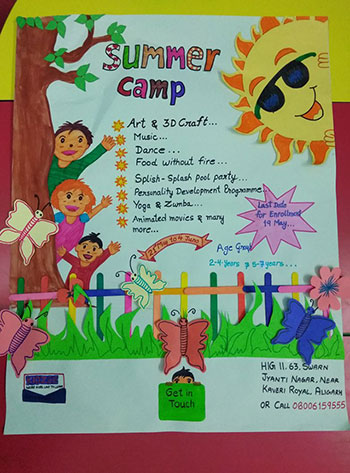 Summer
Camp
Art & 3D Craft...
Music...
Dance...
Food without fire...
Splish-Splash pool party....
Personality Development Programme.
Yoga & Zumba...
Animated movies & many
more...
Last Date
for Enrollment
19 May...
to 4 June
Age Group
2-4 years & 5-7 years...
Get in
Touch
HIG 11.63, SWARN
JYANTI NAGAR, NEAR
KAVERI ROYAL, ALIGARH
OR CALL 08006159555